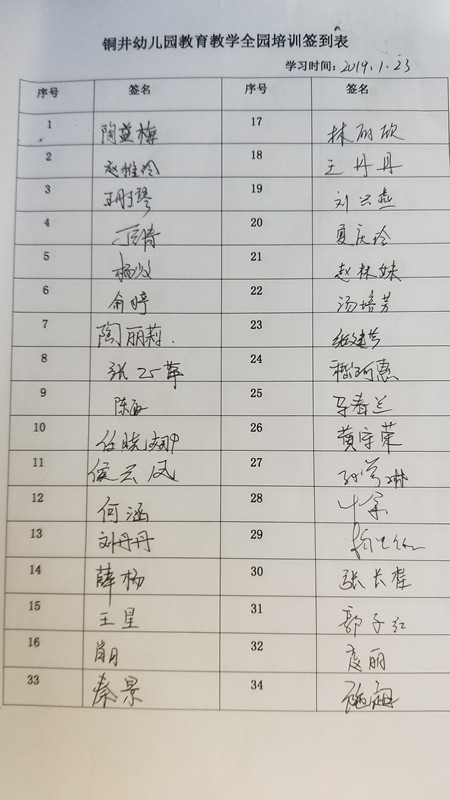 铜井幼儿园教育教学全园培训签到表
学习时间：2019.1.23
序号 签名 序号 签名
1 陶益梅 17 林丽欣
2 赵雅玲 18 王丹丹
3 19 刘兴燕
4 丁倩 20 夏庆玲
5 杨 21 赵林妹
6 俞婷 22 汤培芳
7 陶丽莉. 23
8 张 24
9 陈 25 马春兰
10 任晓翔 26 黄守荣
11 侯云凤 27
12 何涵 28
13 刘丹丹 29
14 薛杨 30 张长桂
15 王星 31 郭子红
16 肖月 32 庞丽
33 秦景 34